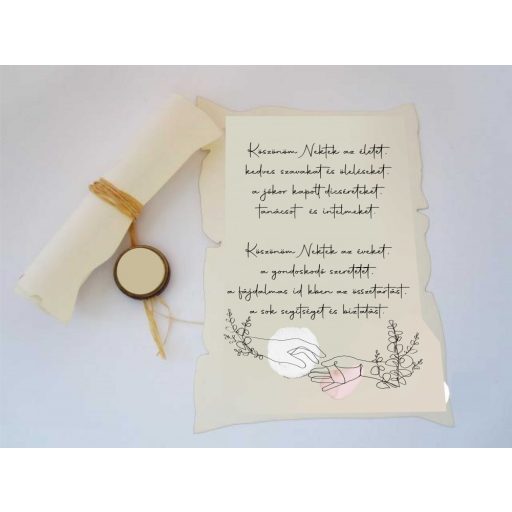 Köszönöm Nektek az életet,
kedves szavakat és öleléseket,
a jókor kapott dicséreteket,
tanácsot és intelmeket.
Köszönöm Nektek az éveket,
a gondoskodó szeretetet,
a fájdalmas id kben az összetartást,
a sok segítséget és biztatást.